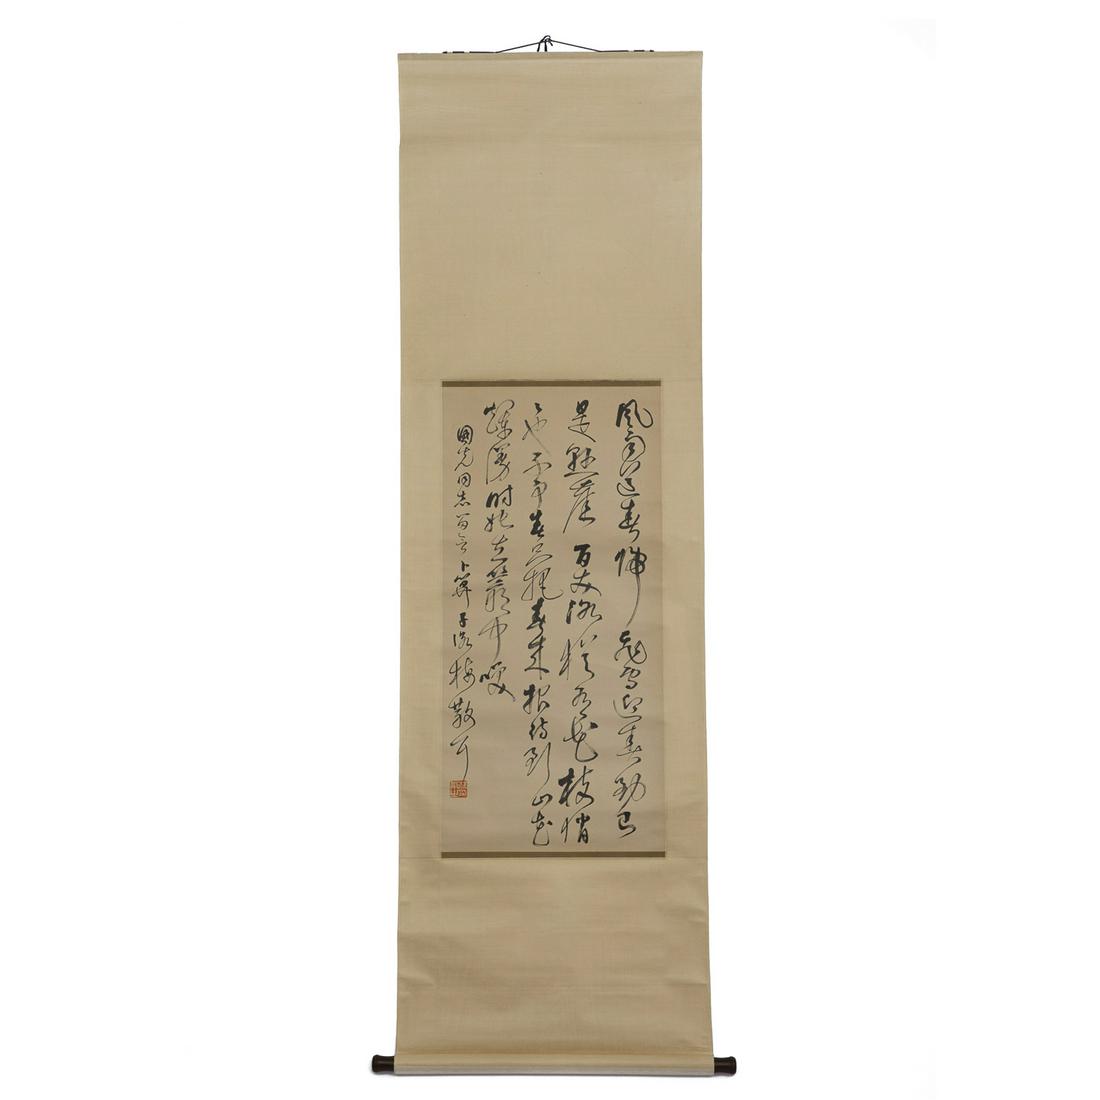 風雨送春歸飛雪迎春到已
是懸崖百丈冰猶有花枝俏
〻也不争春只把春來報待到山花
爛漫时她在叢中笑
國光同志 卜算子詠梅散耳